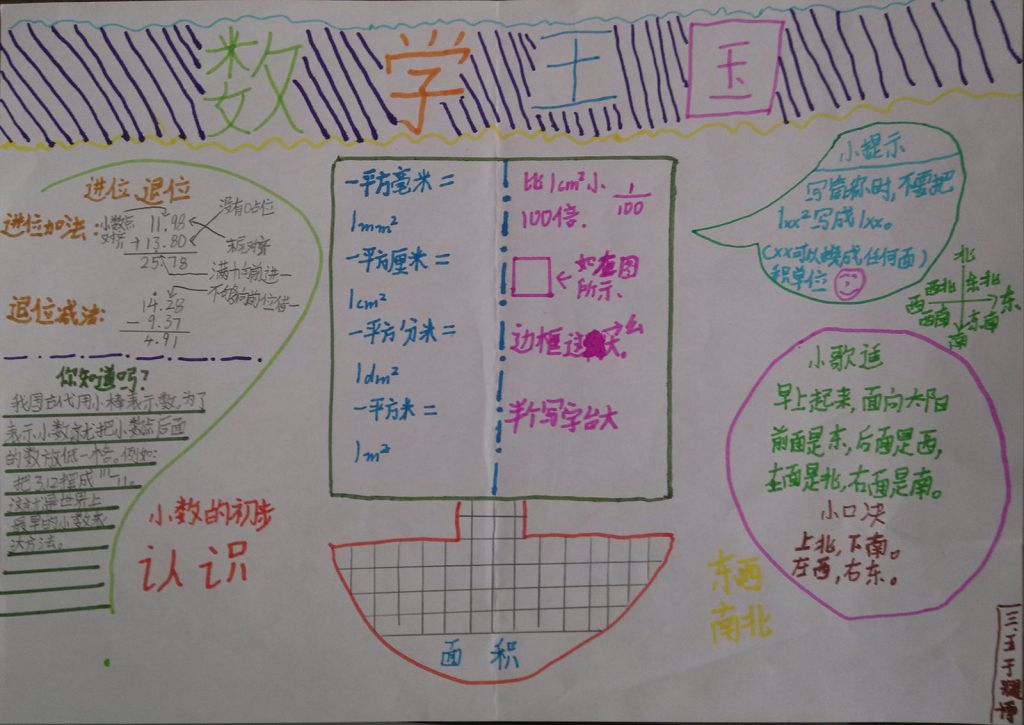 数学王国
进位 退位
进位加法:
小数点
对齐
11.98
+13.80
25.78
没有0占位
末尾对齐
满十向前进一
不够向前位借一
退位减法:
14.28
- 9.37
4.91
你知道吗?
我国古代用小棒表示数.为了
表示小数,就把小数点后面
的数放低一格.例如:
把3.12摆成
这就是世界上
最早的小数表
达方法。
小数的初步
认识
一平方毫米=
1mm²
一平方厘米=
1cm²
一平方分米=
1dm²
一平方米=
1m²
比1cm²小 1/100
100倍.
如查图
所示.
边框这么大.
半个写字台大
面积
小提示
写简称时,不要把
1xx²写成1xx。
(xx可以换成任何面)
积单位
北
西北 东北
西 东
西南 东南
南
小歌适
早上起来,面向太阳
前面是东,后面是西,
左面是北,右面是南。
小口决
上北,下南。
左西,右东。
东西
南北
三.五于